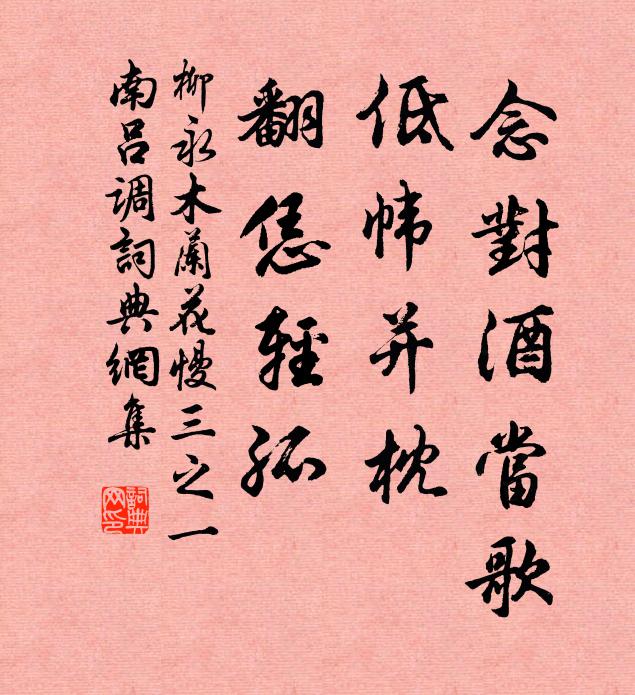 念對酒當歌
低幃并枕
翻恁輕孤
柳永木蘭花慢三之一
南呂调詞典網集
詞典
网印